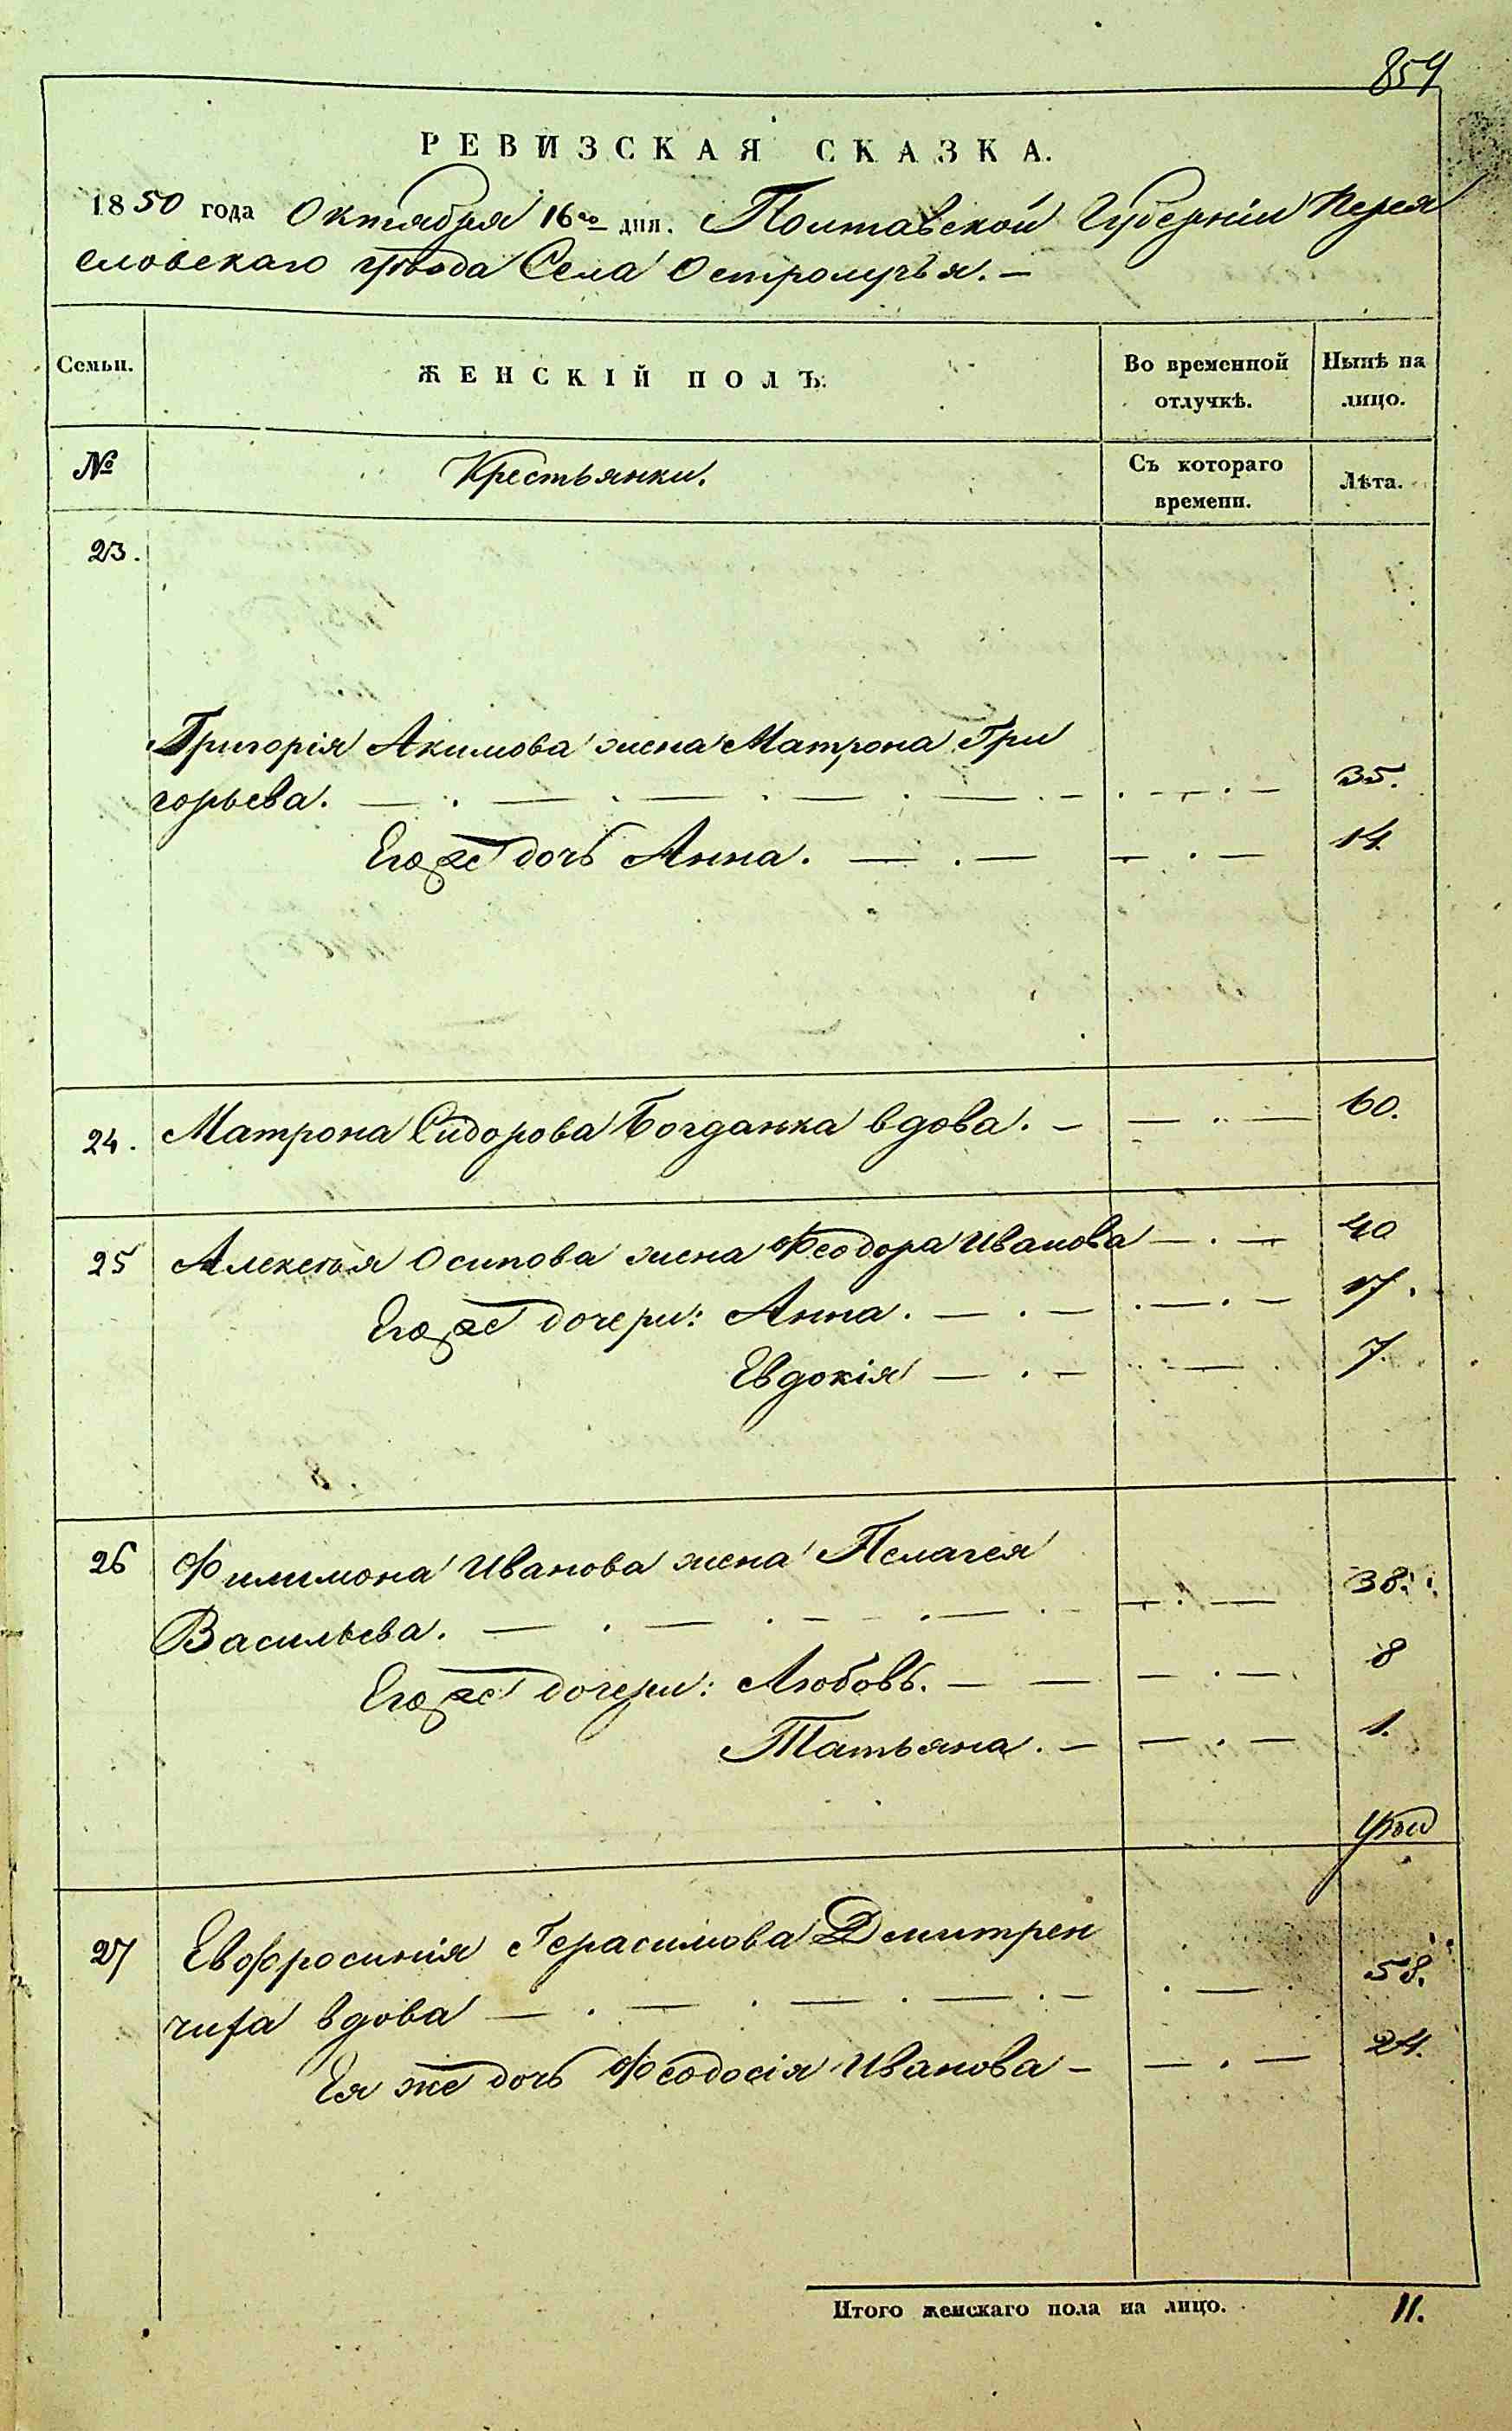 859
РЕВИЗСКАЯ СКАЗКА.
1850 года Октября 16го дня. Полтавской Губерніи Перея
словскаго уѣзда Села Остролучья. —
Семьи. ЖЕНСКІЙ ПОЛЪ. Во временной отлучкѣ. Нынѣ на лицо.
№ Крестьянки. Съ котораго времени. Лѣта.
23.
Григорія Акимова жена Матрона Гри
горьева. 35.
Его же дочь Анна. 14.
24. Матрона Сидорова Богданка вдова. 60.
25 Алексѣя Осипова жена Феодора Иванова 40
Его же дочери: Анна. 17.
Евдокія 7.
26 Филимона Иванова жена Пелагея
Васильева. 38.
Его же дочери: Любовь. 8
Татьяна. 1.
27 Евфросинія Герасимова Дмитрен
чиха вдова 58.
Ея же дочь Феодосія Иванова 24.
Итого женскаго пола на лицо. 11.